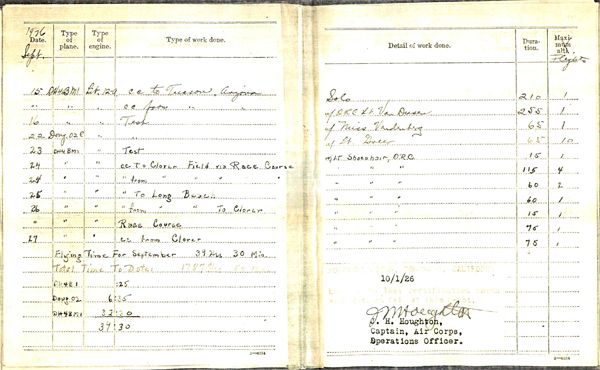 1926
Date.
Type of plane.
Type of engine.
Type of work done.
Sept.
15 DH4BM1 Lib. 12A cc to Tucson, Arizona
" " " cc from " "
16 " " Test
22 Doug. O2C " "
23 DH4BM1 " Test
24 " " cc To Clover Field via Race Course
24 " " " from " " " "
25 " " " To Long Beach
26 " " " from " " To Clover
" " Race Course
27 " " cc from Clover
Flying Time For September 39 Hrs 30 Min.
Total Time To Date 1787 Hrs
DH4B1 :25
Doug O2 6:35
DH4BM1 32:30
39:30
Detail of work done.
Duration.
Maximum alt.
Flights
Solo 210 1
w/ORC Lt. Van Dusen 255 1
w/Miss 65 1
w/Lt. 65 10
w/Lt Shonhair, ORC 15 1
" " " 115 4
" " " 60 2
" " " 60 1
" " " 15 1
" " " 75 1
" " " 75 1
10/1/26
JMHoughton
J. H. Houghton,
Captain, Air Corps,
Operations Officer.